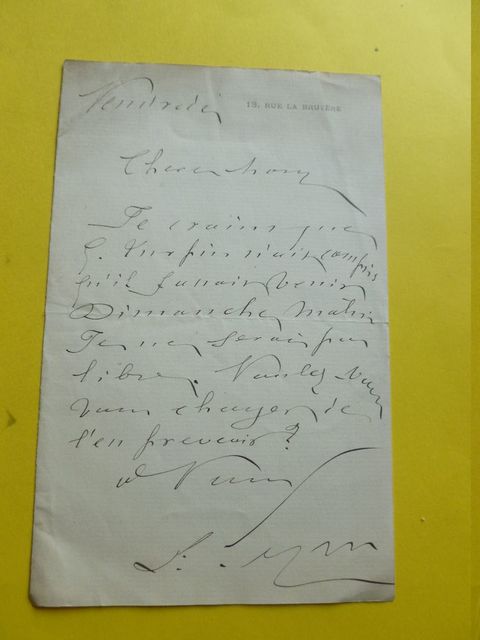 Vendredi
13, RUE LA BRUYÈRE
Je crains que
n'ait compris
qu'il fallait venir
Dimanche matin
Je ne serai pas
libre. Voulez-vous
vous charger de
l'en prévenir?